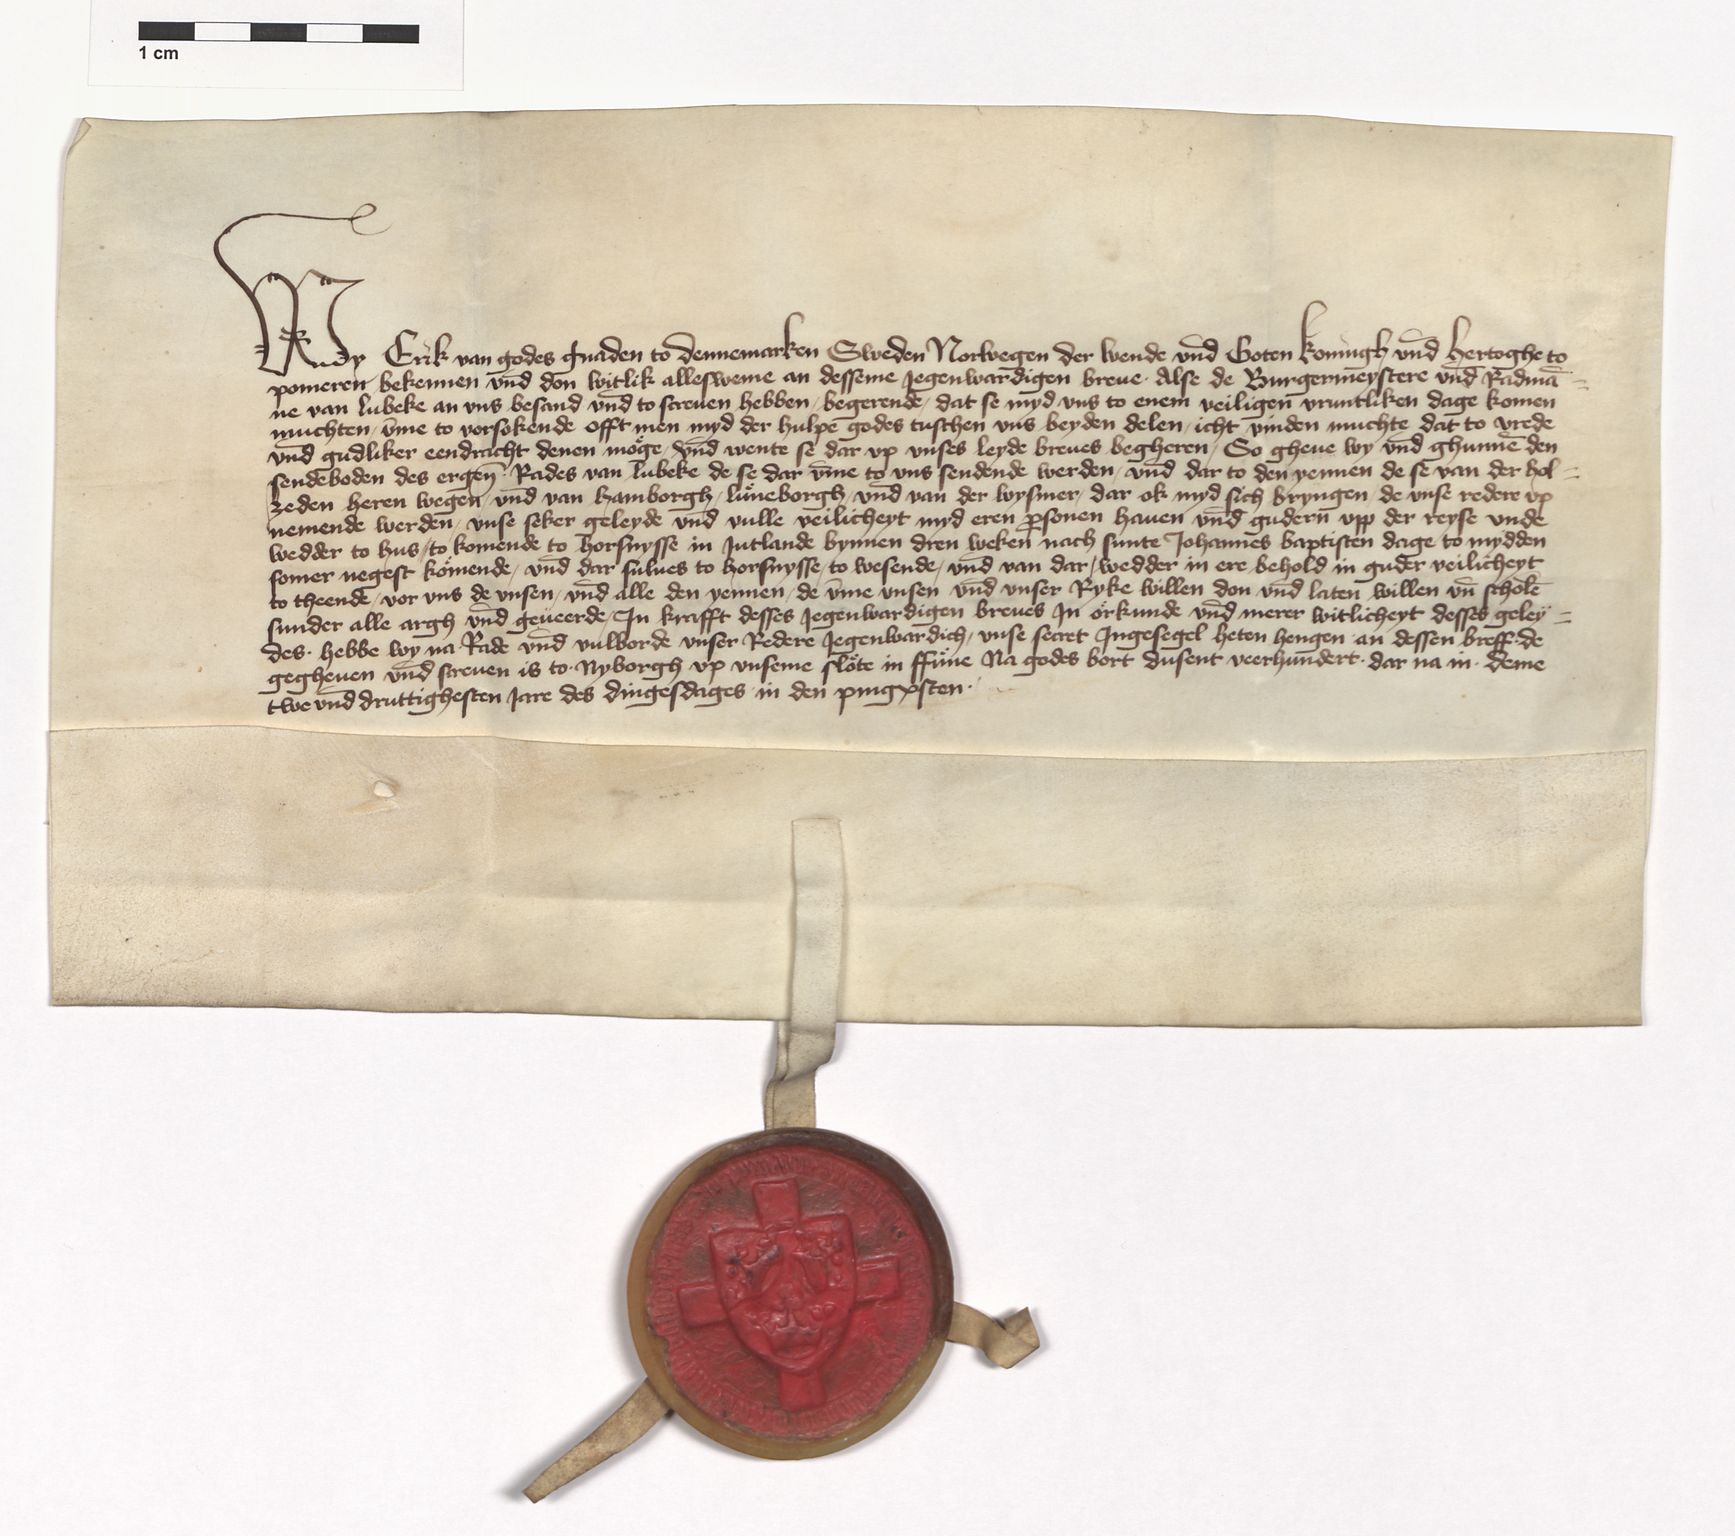 1 cm
Wy Erik van godes gnaden to dennemarken Sweden Norwegen der wende vnd Goten koningh vnd hertoghe to
pomeren bekennen vnd don witlik allesweme an desseme jegenwardigen breue. Alse de Burgermeystere vnd Radmā=
ne van lubeke an vns besand vnd to screuen hebben, begerende, dat se myd vns to enem veiligen vruntliken dage komen
muchten, vm̄e to vorsokende offt men myd der hulpe godes tuschen vns beyden delen, icht vinden muchte dat to vrede
vnd gudliker eendracht denen moge, vnd wente se dar vp vnses leyde breues begheren, So gheue wy vnd ghunnē den
sendeboden des ergen̄. Rades van lubeke de se dar vm̄e to vns sendende werden, vnd dar to den yennen de se van der hol=
zeden heren wegen, vnd van hamborgh, luneborgh, vnd van der wysmer, dar ok myd sich bryngen, de vnse redere vp
nemende werden, vnse seker geleyde vnd vulle veilicheyt myd eren ꝑsonen hauen vnd gudern vpp der reyse vnde
wedder to hus, to komende to horsnysse in Jutlande bynnen dren weken nach sunte Johannes baptisten dage to mydden
somer negest komende, vnd dar sulues to horsnysse, to wesende, vnd van dar, wedder in ere behold in guder veilicheyt
to theende, vor vns de vnsen, vnd alle den yennen, de vm̄e vnsen vnd vnser Ryke willen don vnd laten willen vn̄ scholē
sunder alle argh vnd geueerde, In krafft desses jegenwardigen breues In orkunde vnd merer witlicheyt desses geley=
des. hebbe wy na Rade vnd vulborde vnser Redere jegenwardich, vnse secret Ingesegel heten hengen an dessen breff. de
gegheuen vnd screuen is to. Nyborgh vp vnseme slote in ffune Na godes bort dusent veerhundert. dar na in. deme
twe vnd druttighesten jare des dingesdages in den pingxsten.